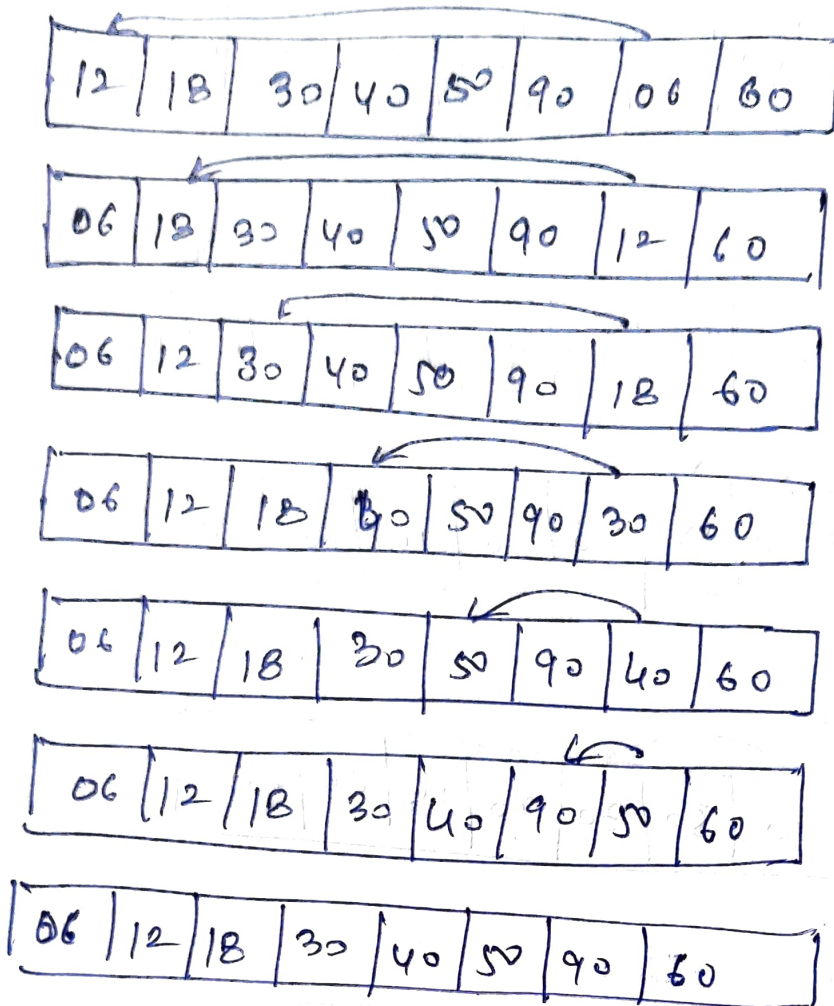 12 18 30 40 50 90 06 60
06 18 30 40 50 90 12 60
06 12 30 40 50 90 18 60
06 12 18 40 50 90 30 60
06 12 18 30 50 90 40 60
06 12 18 30 40 90 50 60
06 12 18 30 40 50 90 60